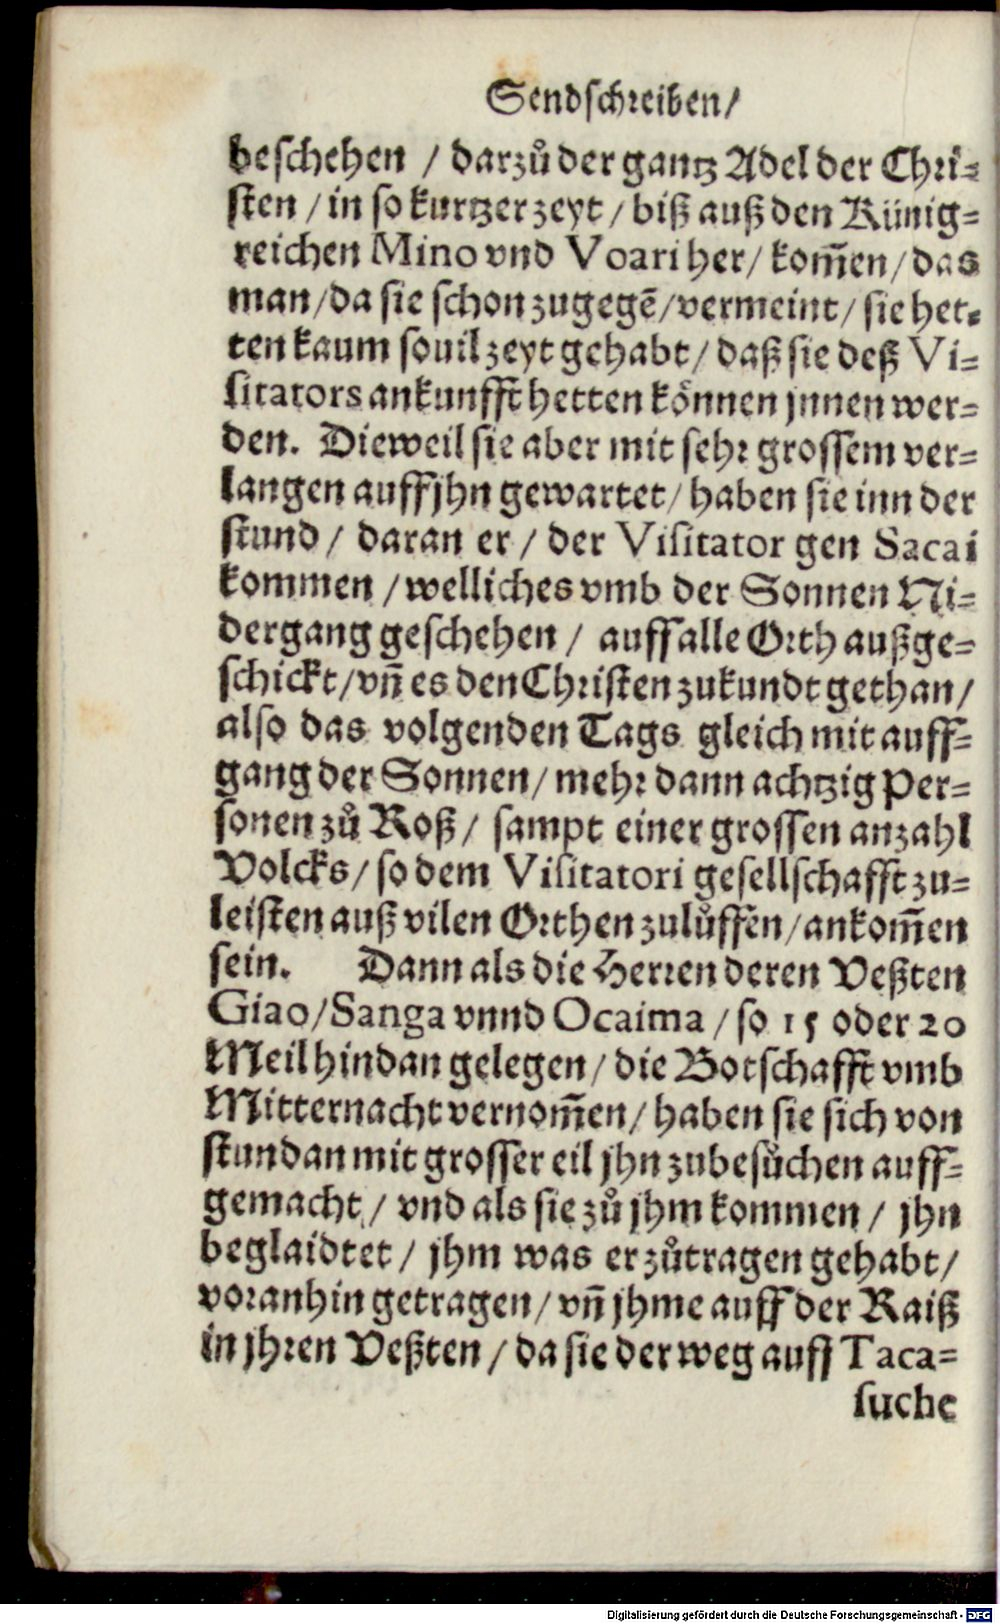 Sendschreiben/
beschehen / darzů der gantz Adel der Chri-
sten / in so kurtzer zeyt / biß auß den Künig-
reichen Mino vnd Voari her / kom̃en / das
man / da sie schon zugegẽ / vermeint / sie het-
ten kaum souil zeyt gehabt / daß sie deß Vi-
sitators ankunfft hetten können jnnen wer-
den. Dieweil sie aber mit sehr grossem ver-
langen auff jhn gewartet / haben sie inn der
stund / daran er / der Visitator gen Sacai
kommen / welliches vmb der Sonnen Ni-
dergang geschehen / auff alle Orth außge-
schickt / vñ es den Christen zukundt gethan /
also das volgenden Tags gleich mit auff-
gang der Sonnen / mehr dann achtzig Per-
sonen zů Roß / sampt einer grossen anzahl
Volcks / so dem Visitatori gesellschafft zu-
leisten auß vilen Orthen zulůffen / ankom̃en
sein. Dann als die Herren deren Veßten
Giao / Sanga vnnd Ocaima / so 15 oder 20
Meil hindan gelegen / die Botschafft vmb
Mitternacht vernom̃en / haben sie sich von
stundan mit grosser eil jhn zubesůchen auff-
gemacht / vnd als sie zů jhm kommen / jhn
beglaidtet / jhm was er zůtragen gehabt /
voranhin getragen / vñ jhme auff der Raiß
in jhren Veßten / da sie der weg auff Taca-
suche
Digitalisierung gefördert durch die Deutsche Forschungsgemeinschaft - DFG